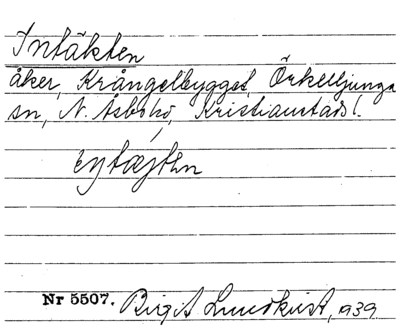 Intäkten
åker, Krångelbygget, Örkelljunga
sn, N. Åsbo hd, Kristianstads l.
Nr 5507. Birgit Lundkvist, 1939.